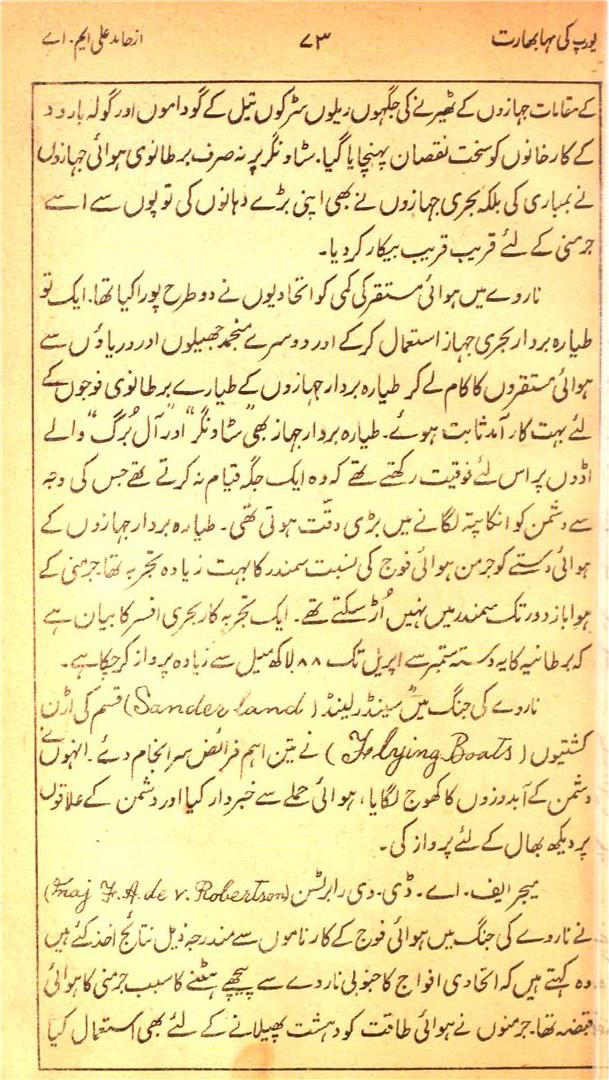 یورپ کی مہابھارت ۷۳ از حامد علی ایم۔ اے
کے مقامات جہازوں کے ٹھیرنے کی جگہوں ریلوں سڑکوں تیل کے گوداموں اور گولہ بارود
کے کارخانوں کو سخت نقصان پہنچایا گیا۔ سٹاونگر پر نہ صرف برطانوی ہوائی جہازوں
نے بمباری کی بلکہ بحری جہازوں نے بھی اپنی بڑے دہانوں کی توپوں سے اسے
جرمنی کے لئے قریب قریب بیکار کر دیا۔
ناروے میں ہوائی مستقر کی کمی کو اتحادیوں نے دو طرح پورا کیا تھا۔ ایک تو
طیارہ بردار بحری جہاز استعمال کر کے اور دوسرے منجمد جھیلوں اور دریاؤں سے
ہوائی مستقروں کا کام لے کر طیارہ بردار جہازوں کے طیارے برطانوی فوجوں کے
لئے بہت کار آمد ثابت ہوئے۔ طیارہ بردار جہاز بھی "سٹاونگر" اور "آل بُرگ" والے
اڈوں پر اس لئے فوقیت رکھتے تھے کہ وہ ایک جگہ قیام نہ کرتے تھے جس کی وجہ
سے دشمن کو انکا پتہ لگانے میں بڑی دقّت ہوتی تھی۔ طیارہ بردار جہازوں کے
ہوائی دستے کو جرمن ہوائی فوج کی نسبت سمندر کا بہت زیادہ تجربہ تھا۔ جرمنی کے
ہواباز دور تک سمندر میں نہیں اُڑ سکتے تھے۔ ایک تجربہ کار بحری افسر کا بیان ہے
کہ برطانیہ کا یہ دستہ ستمبر سے اپریل تک ۸۸ لاکھ میل سے زیادہ پرواز کر چکا ہے۔
ناروے کی جنگ میں "سینڈر لینڈ (Sander land) قسم کی اڑن
کشتیوں (Flying Boats) نے تین اہم فرائض سرانجام دئے۔ انہوں نے
دشمن کے آبدوزوں کا کھوج لگایا، ہوائی حملے سے خبردار کیا اور دشمن کے علاقوں
پر دیکھ بھال کے لئے پرواز کی۔
میجر ایف۔ اے۔ ڈی۔ وی رابرٹسن (Maj F. A. de v. Robertson)
نے ناروے کی جنگ میں ہوائی فوج کے کارناموں سے مندرجہ ذیل نتائج اخذ کئے ہیں
وہ کہتے ہیں کہ اتحادی افواج کا جنوبی ناروے سے پیچھے ہٹنے کا سبب جرمنی کا ہوائی
قبضہ تھا۔ جرمنوں نے ہوائی طاقت کو دہشت پھیلانے کے لئے بھی استعمال کیا